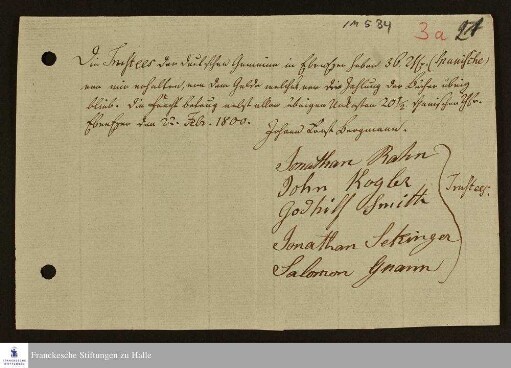 1 M 5 34
3a 21
Die Trustees der deutschen Gemeine in Ebenezer haben 36 (Spanische)
von mir erhalten, von dem Gelde welches von der Zahlung der Bücher übrig
blieb. Die Fracht betrug nebst allen übrigen Unkosten 20½ spanischen
Ebenezer den 22. Febr. 1800.
Johann Ernst Bergmann.
Jonathan Rahn
John Kogler
Godhilf Smith
Trustees.
Jonathan Sekinger
Salomon Gnann
FRANCKESCHE STIFTUNGEN
Franckesche Stiftungen zu Halle